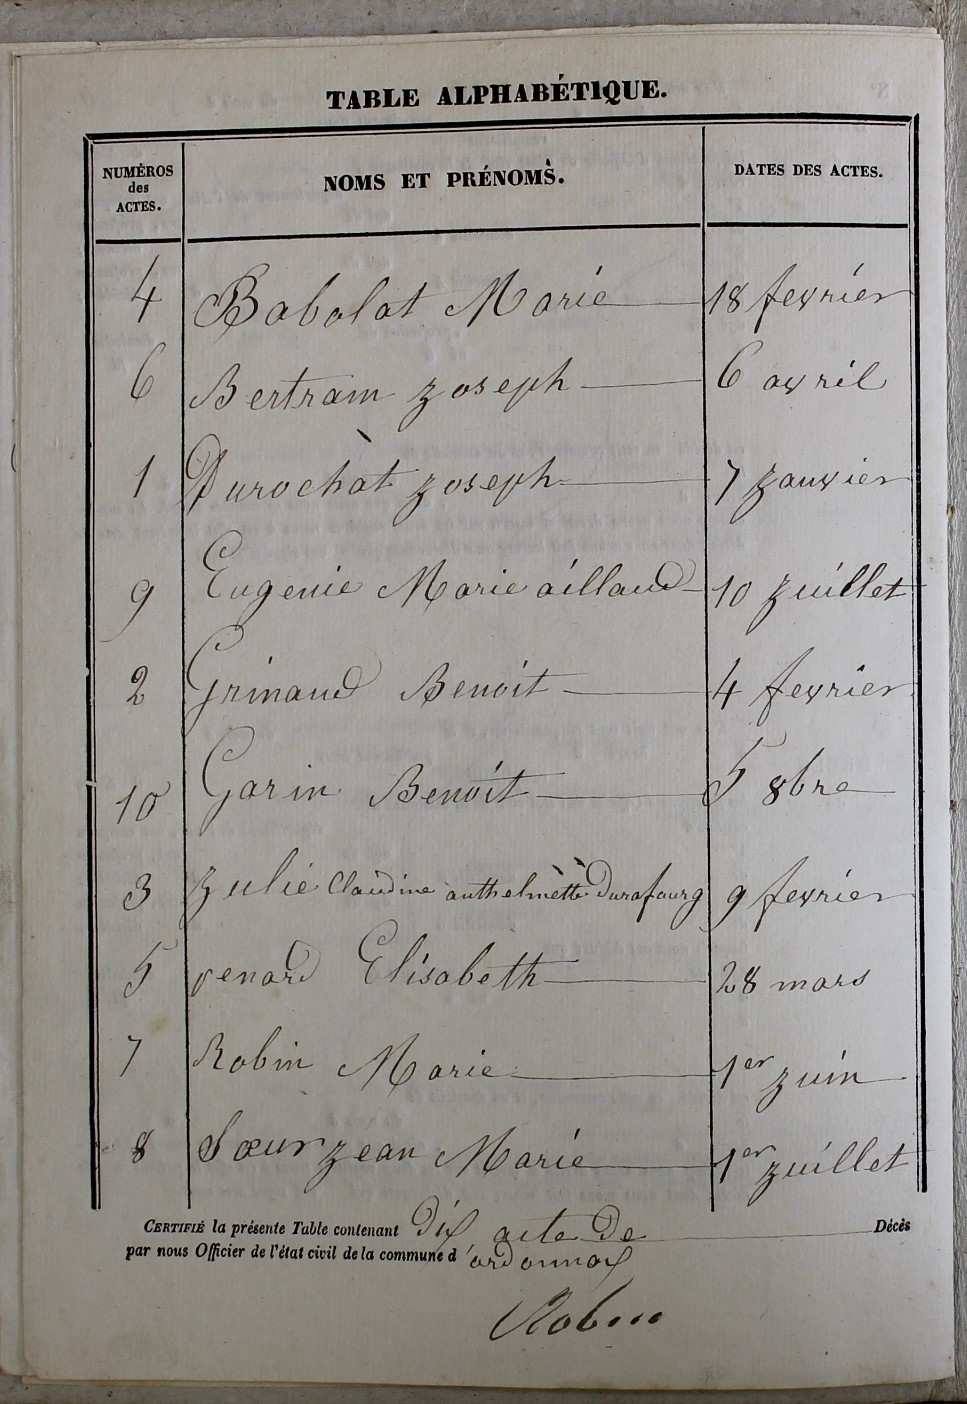 TABLE ALPHABÉTIQUE.
NUMÉROS des ACTES. NOMS ET PRÉNOMS. DATES DES ACTES.
4 Babolat Marie 18 fevrier
6 Bertram Joseph 6 avril
1 Durochat Joseph 7 Janvier
9 Eugenie Marie aillaud 10 Juillet
2 Grinand Benoit 4 fevrier
10 Garin Benoit 5 8bre
3 Julie Claudine anthelmette Durafourg 9 fevrier
5 renard Elisabeth 28 mars
7 Robin Marie 1er Juin
8 Sœur Jean Marie 1er Juillet
CERTIFIÉ la présente Table contenant Dix acte De Décès
par nous Officier de l'état civil de la commune d'ordonnax
Robin